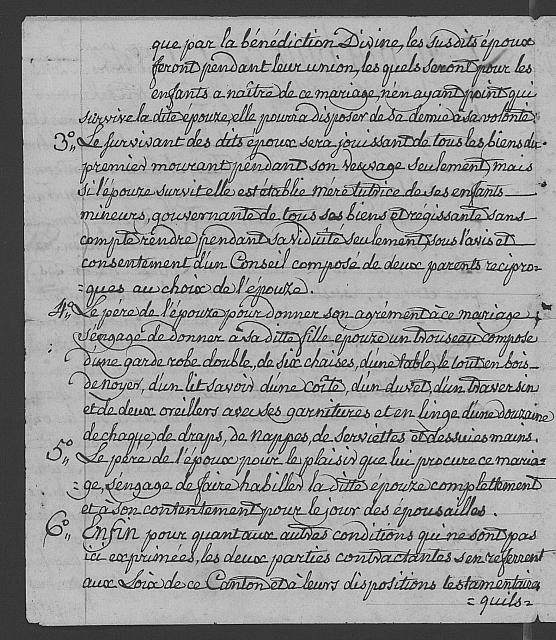 que par la bénédiction Divine, les susdits époux
feront pendant leur union, les quels seront pour les
enfants a naître de ce mariage, n'en ayant point qui
survive la dite épouze, elle pourra disposer de sa demie à sa volonté.
3.° Le survivant des dits époux sera jouissant de tous les biens du
premier mourant pendant son veuvage seulement, mais
si l'épouze survit elle est établie mère tutrice de ses enfants
mineurs, gouvernante de tous ses biens et régissante sans
compte rendre pendant sa viduité seulement, sous l'avis et
consentement d'un Conseil composé de deux parents récipro-
=ques au choix de l'épouze.
4.° Le père de l'épouze pour donner son agrément à ce mariage
s'engage de donner à sa ditte fille épouze un trouseau composé
d'une garde robe double, de six chaises, d'une table, le tout en bois
de noyer, d'un lit savoir d'une coîte, d'un duvet, d'un traversin
et de deux oreillers avec ses garnitures et en linge d'une douzaine
de chaque, de draps, de nappes, de serviettes et d'essuiesmains.
5.° Le père de l'époux pour le plaisir que lui procure ce maria-
=ge, s'engage de faire habiller la ditte épouze complettement
et à son contentement pour le jour des épousailles.
6.° Enfin pour quant aux autres conditions qui ne sont pas
ici exprimées, les deux parties contractantes s'en référent
aux Loix de ce Canton et à leurs dispositions testamentaires
=quils=